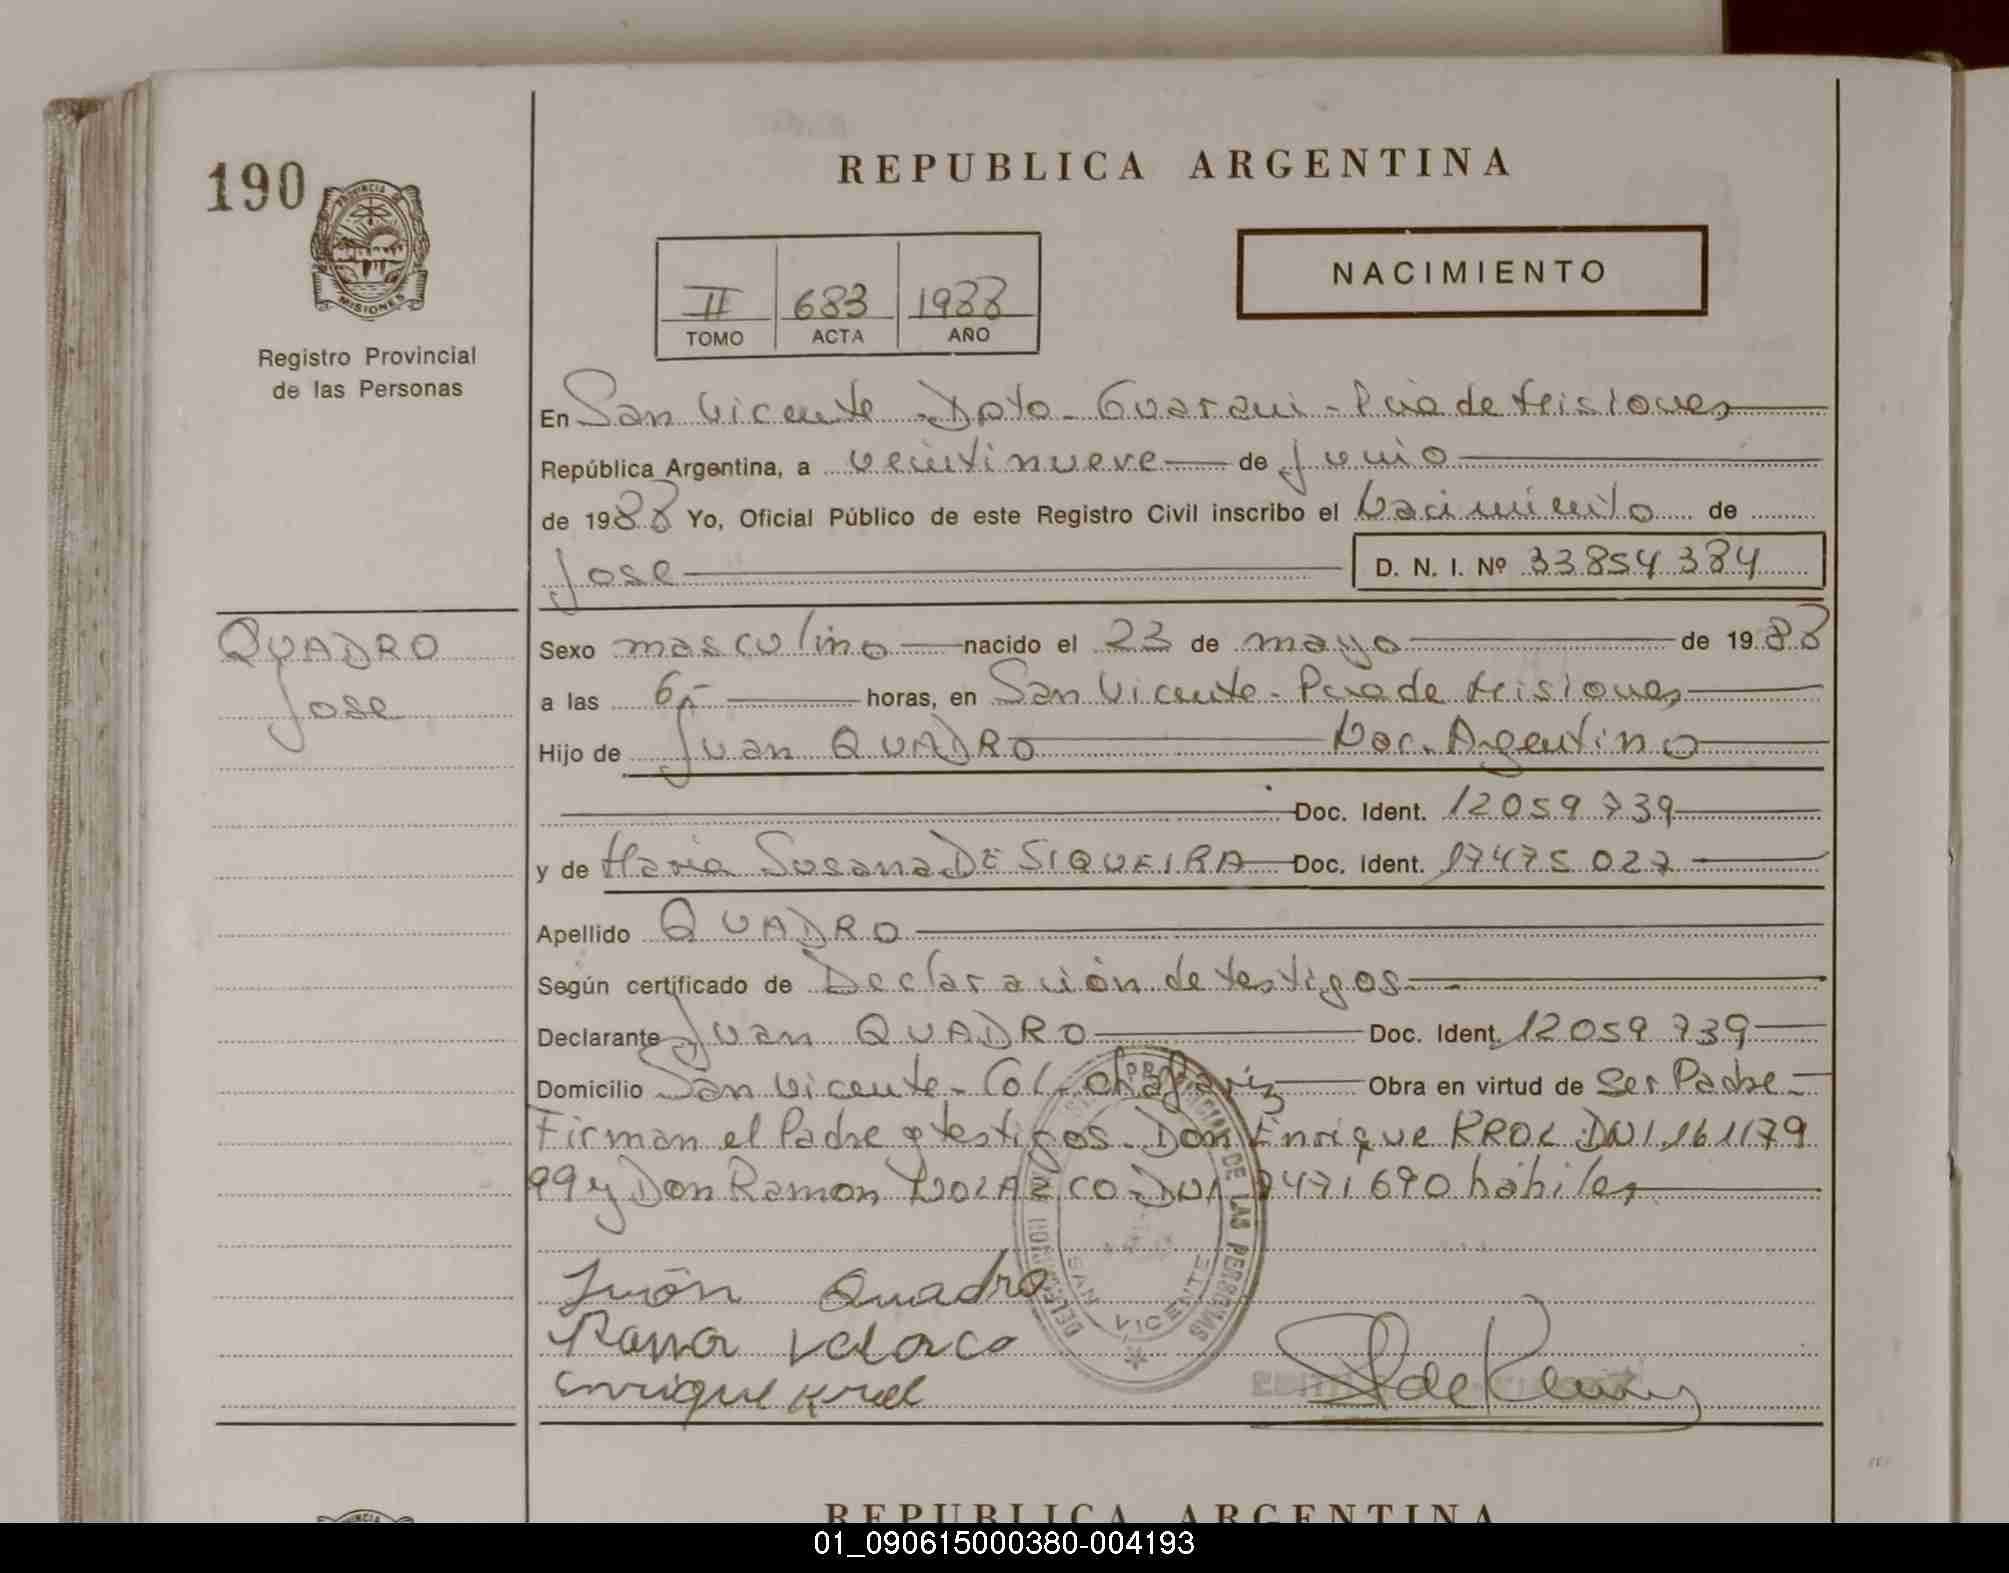 190
REPUBLICA ARGENTINA
PROVINCIA DE MISIONES
NACIMIENTO
II 683 1988
TOMO ACTA AÑO
Registro Provincial
de las Personas
En San Vicente - Dpto - Guarani - Pcia de Misiones
República Argentina, a veintinueve de Junio
de 1988 Yo, Oficial Público de este Registro Civil inscribo el Nacimiento de
Jose D. N. I. Nº 33854384
QUADRO
Jose
Sexo masculino nacido el 23 de mayo de 1988
a las 6,- horas, en San Vicente - Pcia de Misiones
Hijo de Juan QUADRO Nac. Argentino
Doc. Ident. 12059739
y de Maria Susana DE SIQUEIRA Doc. Ident. 17475027
Apellido QUADRO
Según certificado de Declaración de testigos
Declarante Juan QUADRO Doc. Ident. 12059739
Domicilio San Vicente - Col. Obra en virtud de Ser Padre -
Firman el Padre y testigos - Don Enrique KROL DNI 161179
99 y Don Ramon DNI 7471690 hábiles
Juán Quadro
Enrique Krol
DE LAS PERSONAS
SAN VICENTE
REPUBLICA ARGENTINA
01_090615000380-004193